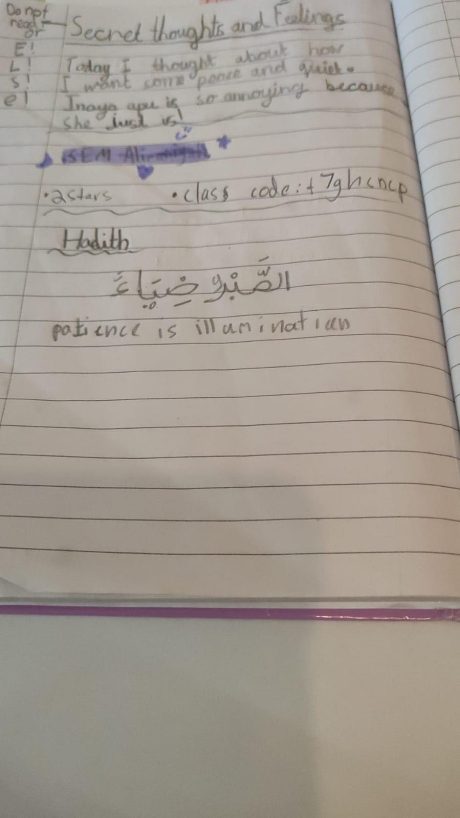 Do not
read
or
E!
L!
S!
e!
Secret thoughts and Feelings
Today I thought about how
I want some peace and quiet.
Inaya apu is so annoying because
she just is!
iSEM
• 2 stars • class code: t7ghcncp
Hadith
الصَّبْرُ ضِيَاءٌ
patience is illumination